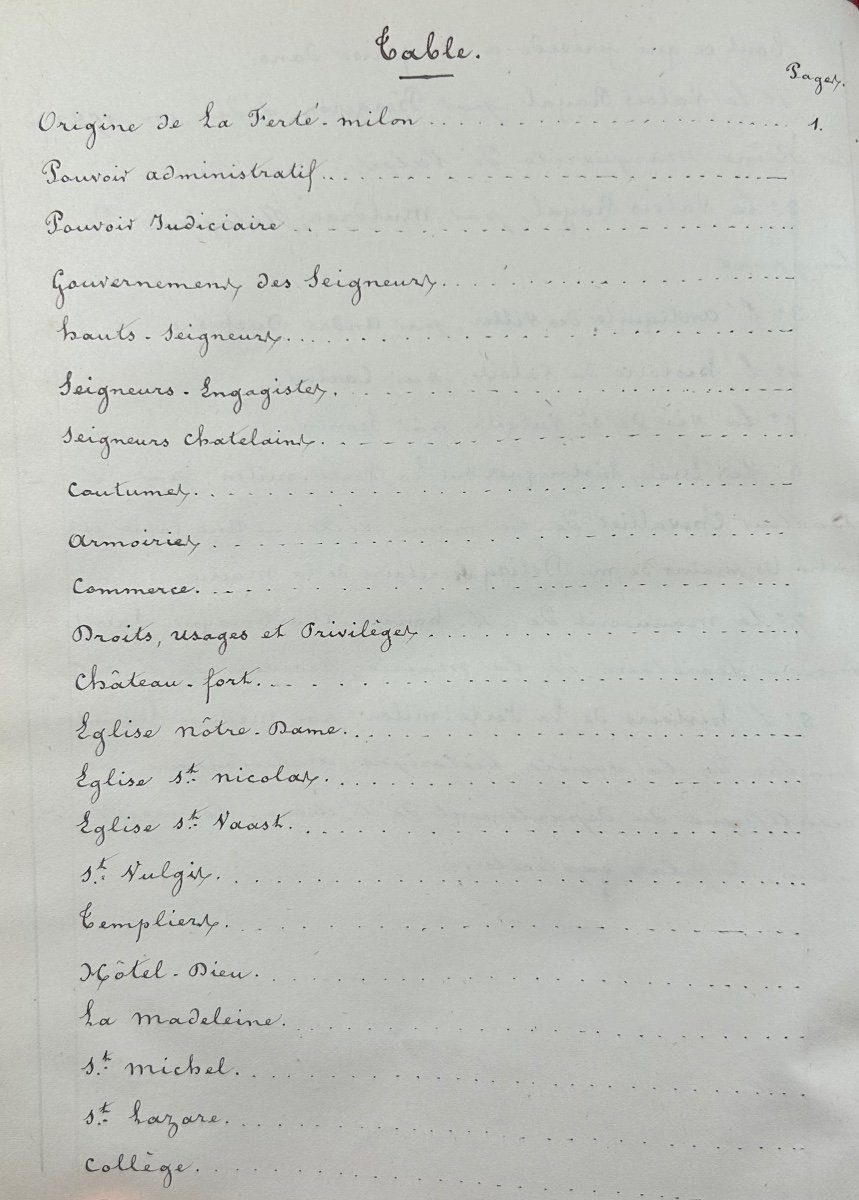 Table.
Pages.
Origine de La Ferté-milon.......... 1.
Pouvoir administratif..........
Pouvoir Judiciaire..........
Gouvernement des Seigneurs..........
hauts-Seigneurs..........
Seigneurs-Engagistes..........
Seigneurs chatelains..........
Coutumes..........
Armoiries..........
Commerce..........
Droits, usages et Privilèges..........
Château-fort..........
Eglise nôtre-Dame..........
Eglise st. nicolas..........
Eglise st. Vaast..........
st. Vulgis..........
Templiers..........
Hôtel-Dieu..........
La madeleine..........
st. michel..........
st. Lazare..........
Collège..........